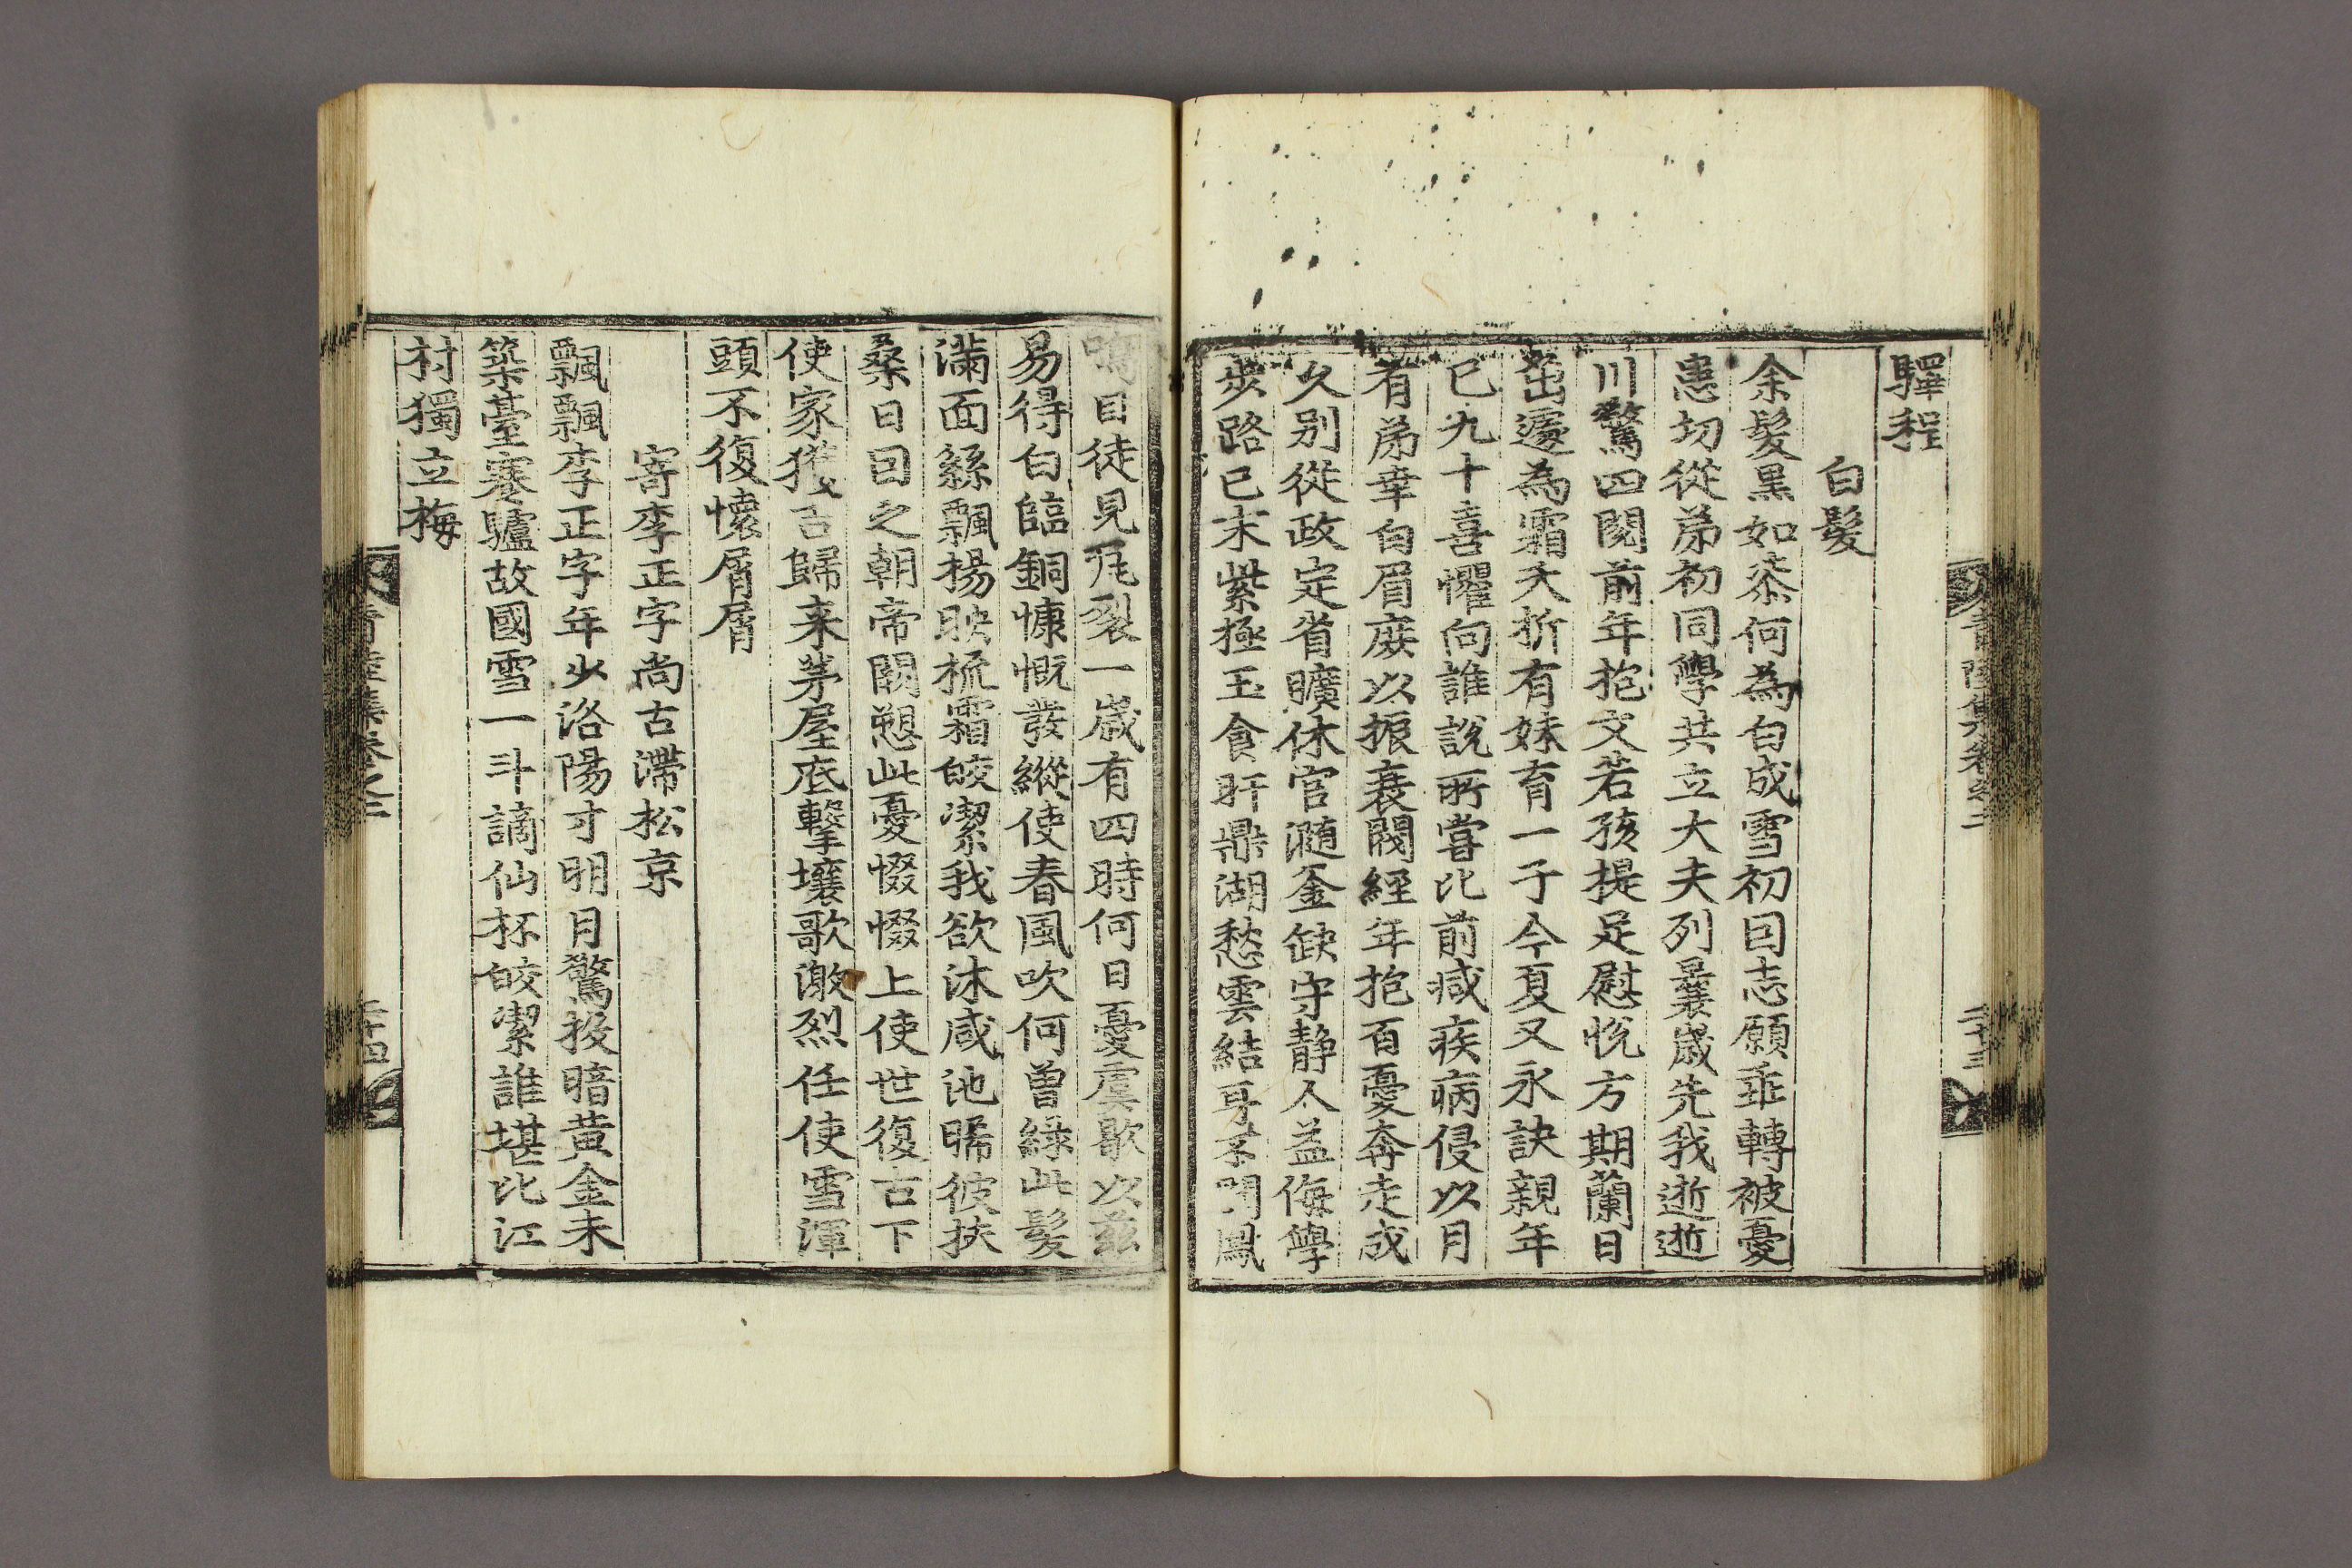 驛程
白髮
余髮黑如漆何為白成雪初回志願乖轉被憂
患切從弟初同學共立大夫列曩歲先我逝逝
川驚四閱前年抱文若孩提足慰悅方期蘭日
茁遽為霜夭折有妹育一子今夏又永訣親年
已九十喜懼向誰說所嘗比前減疾病侵以月
有弟幸白眉庶以振衰閥經年抱百憂奔走成
久別從政定省曠休官瀡釜缺守靜人益侮學
步路已末紫極玉食旰鼎湖愁雲結耳不聞鳳
鳴目徒見瓦裂一歲有四時何日憂虞歇以茲
易得白臨銅慷慨發縱使春風吹何曾綠此髮
滿面絲飄揚映梳霜皎潔我欲沐咸池晞彼扶
桑日回之朝帝闕愬此憂惙惙上使世復古下
使家獲吉歸來茅屋底擊壤歌激烈任使雪渾
頭不復懷屑屑
寄李正字尚古滯松京
飄飄李正字年少洛陽才明月驚投暗黃金未
築臺蹇驢故國雪一斗謫仙杯皎潔誰堪比江
村獨立梅
青陸集卷之二
二十三
青陸集卷之二
二十四